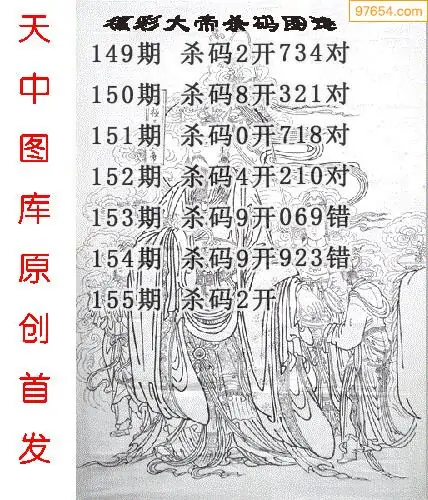 97654.com
福彩大帝杀码图谜
149期 杀码2开734对
150期 杀码8开321对
151期 杀码0开718对
152期 杀码4开210对
153期 杀码9开069错
154期 杀码9开923错
155期 杀码2开
天中图库原创首发